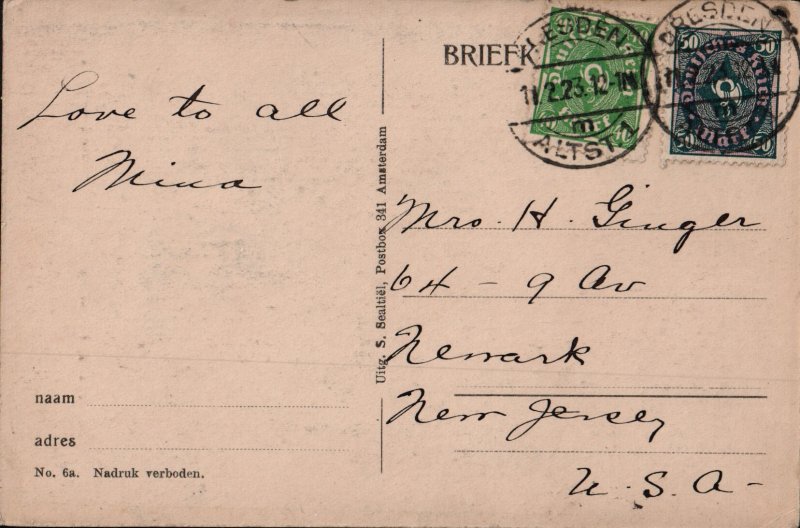 Love to all
Mina
BRIEFK
Uitg. S. Sealtiël, Postbox 341 Amsterdam
DRESDEN
11.2.23.12-1N
m
ALTST. 1
DRESDEN
50 50
Deutsches Reich
Mark
50 50
Mrs. H. Ginger
64 - 9 Av
Newark
New Jersey
U. S. A-
naam
adres
No. 6a. Nadruk verboden.